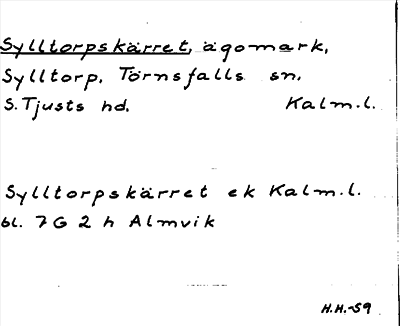 Sylltorpskärret, ägomark,
Sylltorp, Törnsfalls sn.
S. Tjusts hd. Kalm.l.
Sylltorpskärret ek Kalm.l.
bl. 7 G 2 h Almvik
H.H.-59